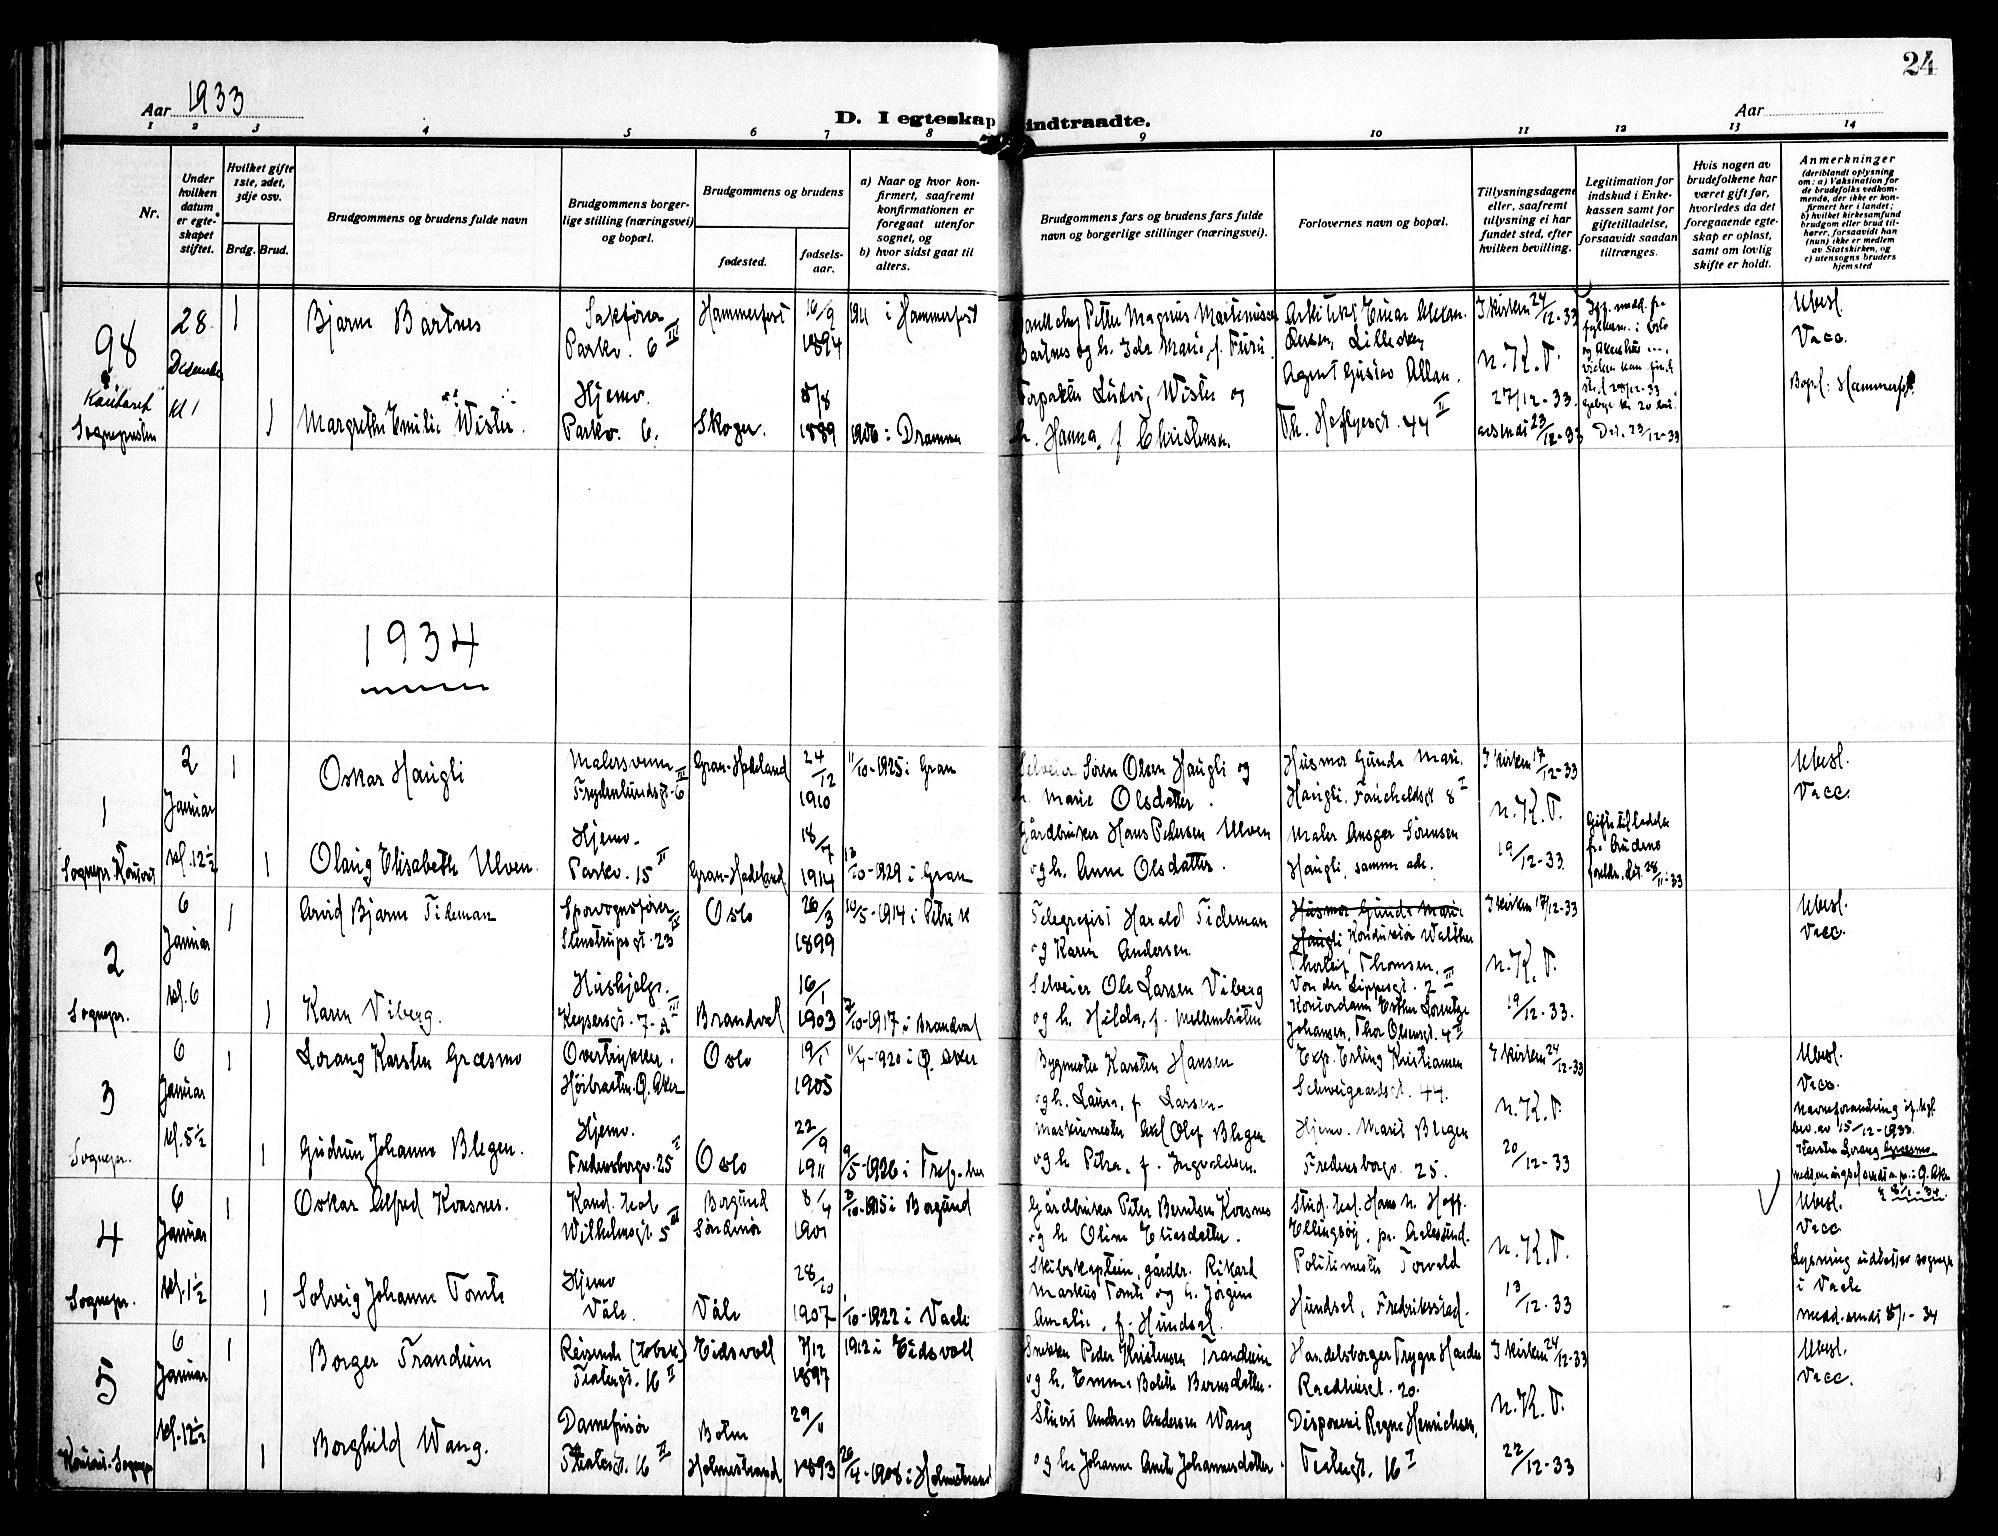 24
Aar 1933
D. I egteskap indtraadte.
Aar
1 2 3 4 5 6 7 8 9 10 11 12 13 14
Nr.
Under hvilken datum er egteskapet stiftet.
Hvilket gifte 1ste, 2det, 3dje osv.
Brdg. Brud.
Brudgommens og brudens fulde navn
Brudgommens borgerlige stilling (næringsvei) og bopæl.
Brudgommens og brudens
fødested.
fødselsaar.
a) Naar og hvor konfirmert, saafremt konfirmationen er foregaat utenfor sognet, og
b) hvor sidst gaat til alters.
Brudgommens fars og brudens fars fulde navn og borgerlige stillinger (næringsvei).
Forlovernes navn og bopæl.
Tillysningsdagene eller, saafremt tillysning ei har fundet sted, efter hvilken bevilling.
Legitimation for indskud i Enkekassen samt for giftetilladelse, forsaavidt saadan tiltrænges.
Hvis nogen av brudefolkene har været gift før, hvorledes da det foregaaende egteskap er opløst, samt om lovlig skifte er holdt.
Anmerkninger
(deriblandt oplysning om: a) Vaksination for de brudefolks vedkommende, der ikke er konfirmert her i landet; b) hvilket kirkesamfund brudgom eller brud tilhører, forsaavidt han (hun) ikke er medlem av Statskirken, og c) utensogns bruders hjemsted
98
28 Desember kl 1
1
Bjarne Bartnes
Sakfører
Parkv. 6 III
Hammerfest
16/9 1894
1911 i Hammerfest
Petter Magnus Martinussen
Bartnes og h. Ida Marie, f. Furu
Arkitekt Einar
Lilleaker
I kirken 24/12-33
n. K. T.
Ubesl.
Vacc.
1
Margrethe Emilie Wister
Hjemv.
Parkv. 6.
Skoger.
8/8 1889
1906 i Drammen
Forpakter Ludvig Wister og
h. Hanna, f Christensen
Agent Gustav Allan.
Th. Heftyesgt. 44 II
27/12-33
23/12-33
Bopel: Hammerfest
1934
1
2 Januar kl. 12½
Sognepr. Kontor
1
Oskar Haugli
Malersvenn
Frydenlundsgt. 6 III
Gran-Hadeland
24/12 1910
11/10-1925 i Gran
Selveier Søren Olsen Haugli og
h. Marie Olsdatter.
Husmor Gunda Marie
Haugli, Faucheldsgt 8 I
I kirken 17/12-33
n. K. T.
Ubesl.
Vacc.
1
Olaug Elisabeth Ulven.
Hjemv.
Parkv. 15 II
Gran-Hadeland
18/7 1914
13/10-1929 i Gran
Gårdbruker Hans Pedersen Ulven
og h. Anne Olsdatter.
Maler Ansger Sørensen
Haugli, samme adr.
19/12-33.
Giftetilladelse
fra brudens
foreldr. dat. 28/11-33
2
6 Januar kl. 6
Sognepr.
1
Arvid Bjarne Tideman
Sporvognsfører
Stenstrupsgt. 23 III
Oslo
26/3 1899
10/5-1914 i Petri K
Telegrafist Harald Tideman
og Karen Andersen.
Husmor Gunda Marie
Haugli Konduktør Walther
Thorleif Thomsen.
Von der Lippesgt. 2 III
I kirken 17/12-33
n. K. T.
Ubesl.
Vacc.
1
Karen Viberg.
Hushjelp.
Keysersgt. 7-A III
Brandval
16/1 1903
7/10-1917 i Brandval
Selveier Ole Larsen Viberg
og h. Hilda, f. Mellembråten
Kontordame Esther Lorentze
Johansen, Thor Olsensgt. 4 II
19/12-33.
3
6 Januar kl. 5½
Sognepr.
1
Lorang Karsten Græsmo
Overtrykker.
Høibraaten. Ø. Aker
Oslo
19/1 1905
11/4-1920 i Ø. Aker
Bygmester Karsten Hansen
og h. Laura, f Larsen.
Exp. Erling Kristiansen
Schweigaardsgt. 44.
I kirken 24/12-33
n. K. T.
Ubesl.
Vacc.
Navneforandring if. kgl.
bev. av 15/12-1933.
Karsten Lorang Græsmo
1
Gudrun Johanne Blegen.
Hjemv.
Fredensborgv. 25 I
Oslo
22/9 1911
9/5-1926 i Tref.
Maskinmester Axel Olaf Blegen
og h Petra, f. Ingvaldsen.
Hjemv. Marit Blegen
Fredensborgv. 25.
20/12-33
4
6 Januar kl. 1½
Sognepr.
1
Oskar Alfred Kvasnes.
Kand. teol
Wilhelmsgt. 5 III
Borgund
Søndmør
8/4 1901
3/10-1915 i Borgund
Gårdbruker Peter Berntsen Kvasnes
og h. Oline Eliasdatter.
Stud. teol. Hans N. Hoff.
Ellingsøy, pr. Aalesund.
n. K. T.
Ubesl.
Vacc.
Lysning utstedt av sognepr
i Vaale
medd. sendt 8/1-34
1
Solveig Johanne Tomte
Hjemv
Våle
Våle
28/10 1907
1/10-1922 i Vaale
Skibskaptein, gårdbr. Rikard
Markus Tomte og h. Jørgine
Amalie, f. Hundsal.
Politimester Torvald
Hundsal, Fredriksstad.
13/12-33
5
6 Januar kl. 12½
Kontor. Sognepr
1
Borger Trandum
Reisende (tobak)
Tostergt. 16 II
Eidsvoll
7/12 1897
1912 i Eidsvoll
Snekker Peder Kristensen Trandum
og h. Emma Bolette Berntsdatter.
Handelsborger Trygve Harder
Raadhusgt. 20.
I kirken 24/12-33
n. K. T.
Ubesl.
Vacc.
1
Borghild Wang.
Damefrisør
16 II
Botne
Holmestrand
29/1 1893
26/4-1908 i Holmestrand
Stuert Andreas Andersen Wang
og h. Johanne Anette Johannesdatter.
Disponent Ragna Henrichsen,
16 I
22/12-33